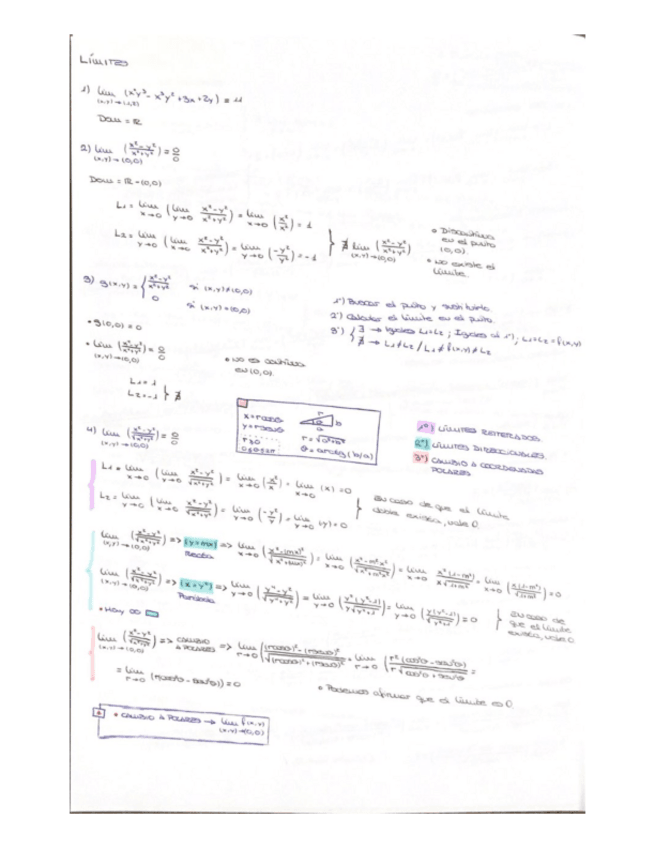 LÍMITES
1) lim (x,y)→(1,2) (x²y³ - x³y² + 3x + 2y) = 11
Dom = ℝ
2) lim (x,y)→(0,0) (x²-y²/x²+y²) = 0/0
Dom = ℝ - (0,0)
L1 = lim x→0 (lim y→0 x²-y²/x²+y²) = lim x→0 (x²/x²) = 1
L2 = lim y→0 (lim x→0 x²-y²/x²+y²) = lim y→0 (-y²/y²) = -1
} ∄ lim (x,y)→(0,0) (x²-y²/x²+y²)
• Discontinua en el punto (0,0).
• No existe el límite.
3) g(x,y) = { x²-y²/x²+y² si (x,y)≠(0,0)
0 si (x,y)=(0,0)
1º) Buscar el punto y sustituirlo.
2º) Calcular el límite en el punto.
3º) { ∃ → Iguales L1=L2 ; Iguales al 1º) ; L1=L2=f(x,y)
∄ → L1≠L2 / L1≠f(x,y)≠L2
• g(0,0) = 0
• lim (x,y)→(0,0) (x²-y²/x²+y²) = 0/0
• No es continua en (0,0).
L1 = 1
L2 = -1 } ∄
x = r cosθ
y = r senθ
r≥0
0≤θ≤2π
r = √a²+b²
θ = arctg (b/a)
4) lim (x,y)→(0,0) (x²-y²/√x²+y²) = 0/0
1º) LÍMITES REITERADOS
2º) LÍMITES DIRECCIONALES
3º) CAMBIO A COORDENADAS POLARES
L1 = lim x→0 (lim y→0 x²-y²/√x²+y²) = lim x→0 (x²/x) = lim x→0 (x) = 0
L2 = lim y→0 (lim x→0 x²-y²/√x²+y²) = lim y→0 (-y²/y) = lim y→0 (y) = 0
} En caso de que el límite doble exista, vale 0.
lim (x,y)→(0,0) (x²-y²/√x²+y²) => (y=mx) Recta => lim x→0 (x²-(mx)²/√x²+(mx)²) = lim x→0 (x²-m²x²/√x²+m²x²) = lim x→0 x²(1-m²)/x√1+m² = lim x→0 x(1-m²)/√1+m² = 0
lim (x,y)→(0,0) (x²-y²/√x²+y²) => (x=y²) Parábola => lim y→0 (y⁴-y²/√y⁴+y²) = lim y→0 (y²(y²-1)/y√y²+1) = lim y→0 (y(y²-1)/√y²+1) = 0
} En caso de que el límite exista, vale 0
• Hay ∞
lim (x,y)→(0,0) (x²-y²/√x²+y²) => CAMBIO A POLARES => lim r→0 ((r cosθ)²-(r senθ)²/√(r cosθ)²+(r senθ)²) = lim r→0 (r²(cos²θ-sen²θ)/r√cos²θ+sen²θ) =
= lim r→0 (r(cos²θ-sen²θ)) = 0
• Podemos afirmar que el límite es 0.
• CAMBIO A POLARES → lim (x,y)→(0,0) f(x,y)